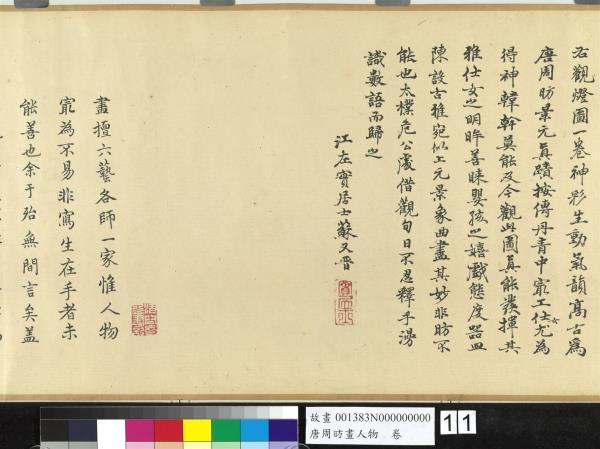 右觀燈圖一卷神彩生動氣韻高古為
唐周昉景元真蹟按傳丹青中最工仕女尤為
得神韓幹莫能及今觀此圖真能發揮其
雅仕女之明眸善睞嬰孩之嬉戲態度器皿
陳設古雅宛似上元景象曲盡其妙非昉不
能也太樸危公處借觀旬日不忍釋手漫
識數語而歸之
江左寶居士蘇又晉
畫擅六藝各師一家惟人物
最為不易非寫生在手者未
能善也余于殆無間言矣蓋
故畫 001383N000000000
唐周昉畫人物 卷
11